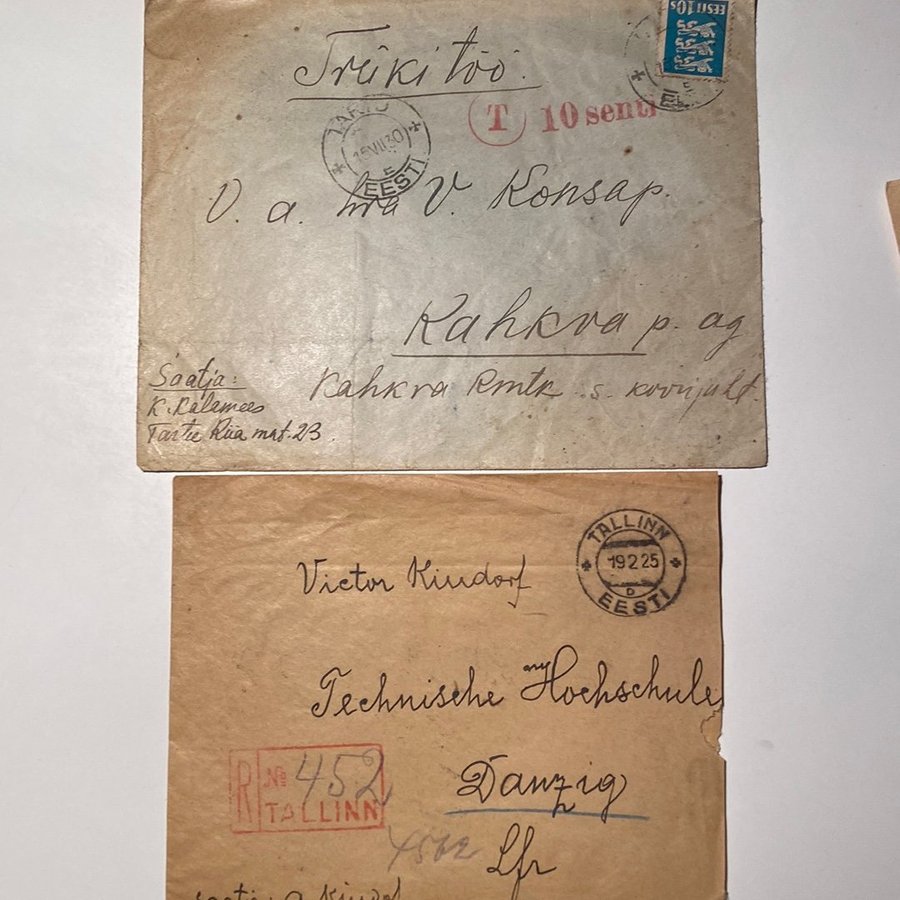 Trükitöö.
EESTI 10 s
T 10 senti
TARTU
E
EESTI
V. a. hra V. Konsap.
Kahkva p. ag
Kahkva Rmtk. s. koorijuht.
Saatja:
K. Kalamees
Tartu Riia mnt. 23.
TALLINN
19 2 25
D
EESTI
Victor Kindorf
Technische Hochschule
R № 452
TALLINN
Danzig
Lfr